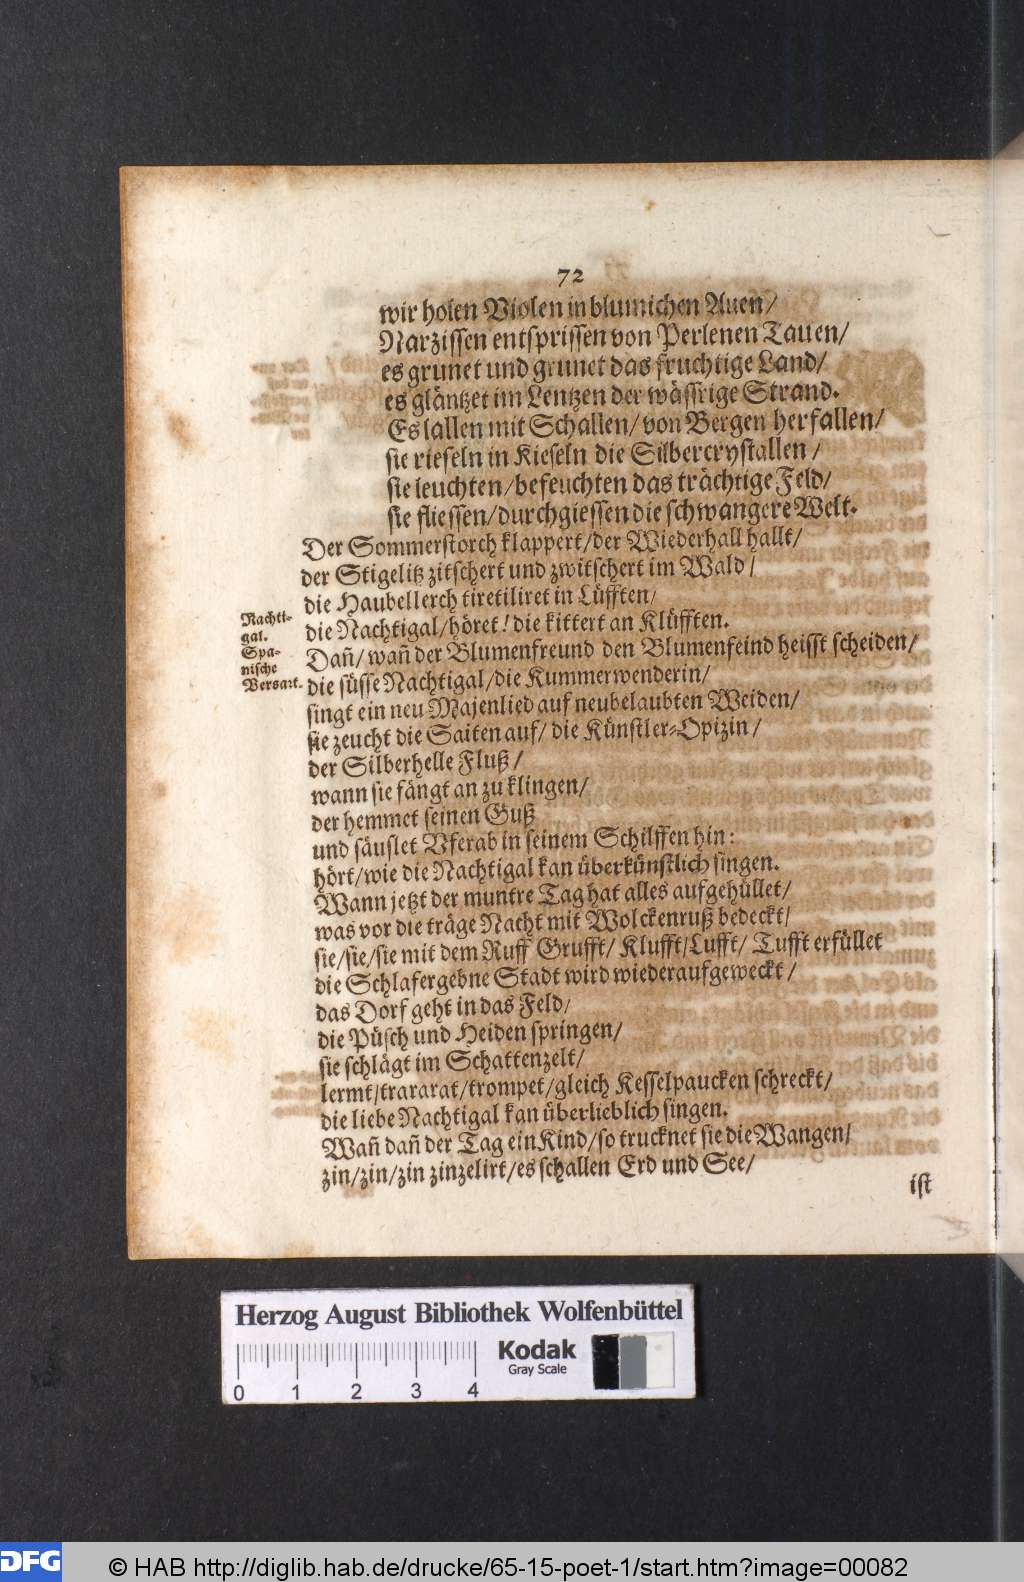 72
wir holen Violen in blumichen Auen/
Narzissen entsprissen von Perlenen Tauen/
es grunet und grunet das fruchtige Land/
es gläntzet im Lentzen der wässrige Strand.
Es lallen mit Schallen/ von Bergen herfallen/
sie rieseln in Kieseln die Silbercrystallen /
sie leuchten/befeuchten das trächtige Feld/
sie fliessen/durchgiessen die schwangere Welt.
Der Sommerstorch klappert/der Wiederhall hallt/
der Stigelitz zitschert und zwitschert im Wald/
die Haubellerch tiretiliret in Lüfften/
die Nachtigal/höret! die kittert an Klüfften.
Nachti-
gal.
Spa-
nische
Versart.
Dañ/ wañ der Blumenfreund den Blumenfeind heisst scheiden/
die süsse Nachtigal/die Kummerwenderin/
singt ein neu Majenlied auf neubelaubten Weiden/
sie zeucht die Saiten auf/ die Künstler-Opizin/
der Silberhelle Fluß/
wann sie fängt an zu klingen/
der hemmet seinen Guß
und säuslet Vferab in seinem Schilffen hin:
hört/wie die Nachtigal kan überkünstlich singen.
Wann jetzt der muntre Tag hat alles aufgehüllet/
was vor die träge Nacht mit Wolckenruß bedeckt/
sie/sie/sie mit dem Ruff Grufft/ Klufft/Lufft/ Tufft erfüllet
die Schlafergebne Stadt wird wiederaufgeweckt/
das Dorf geht in das Feld/
die Püsch und Heiden springen/
sie schlägt im Schattenzelt/
lermt/trararat/trompet/gleich Kesselpaucken schreckt/
die liebe Nachtigal kan überlieblich singen.
Wañ dañ der Tag ein Kind/so trucknet sie die Wangen/
zin/zin/zin zinzelirt/es schallen Erd und See/
ist
Herzog August Bibliothek Wolfenbüttel
Kodak
Gray Scale
0 1 2 3 4
DFG © HAB http://diglib.hab.de/drucke/65-15-poet-1/start.htm?image=00082